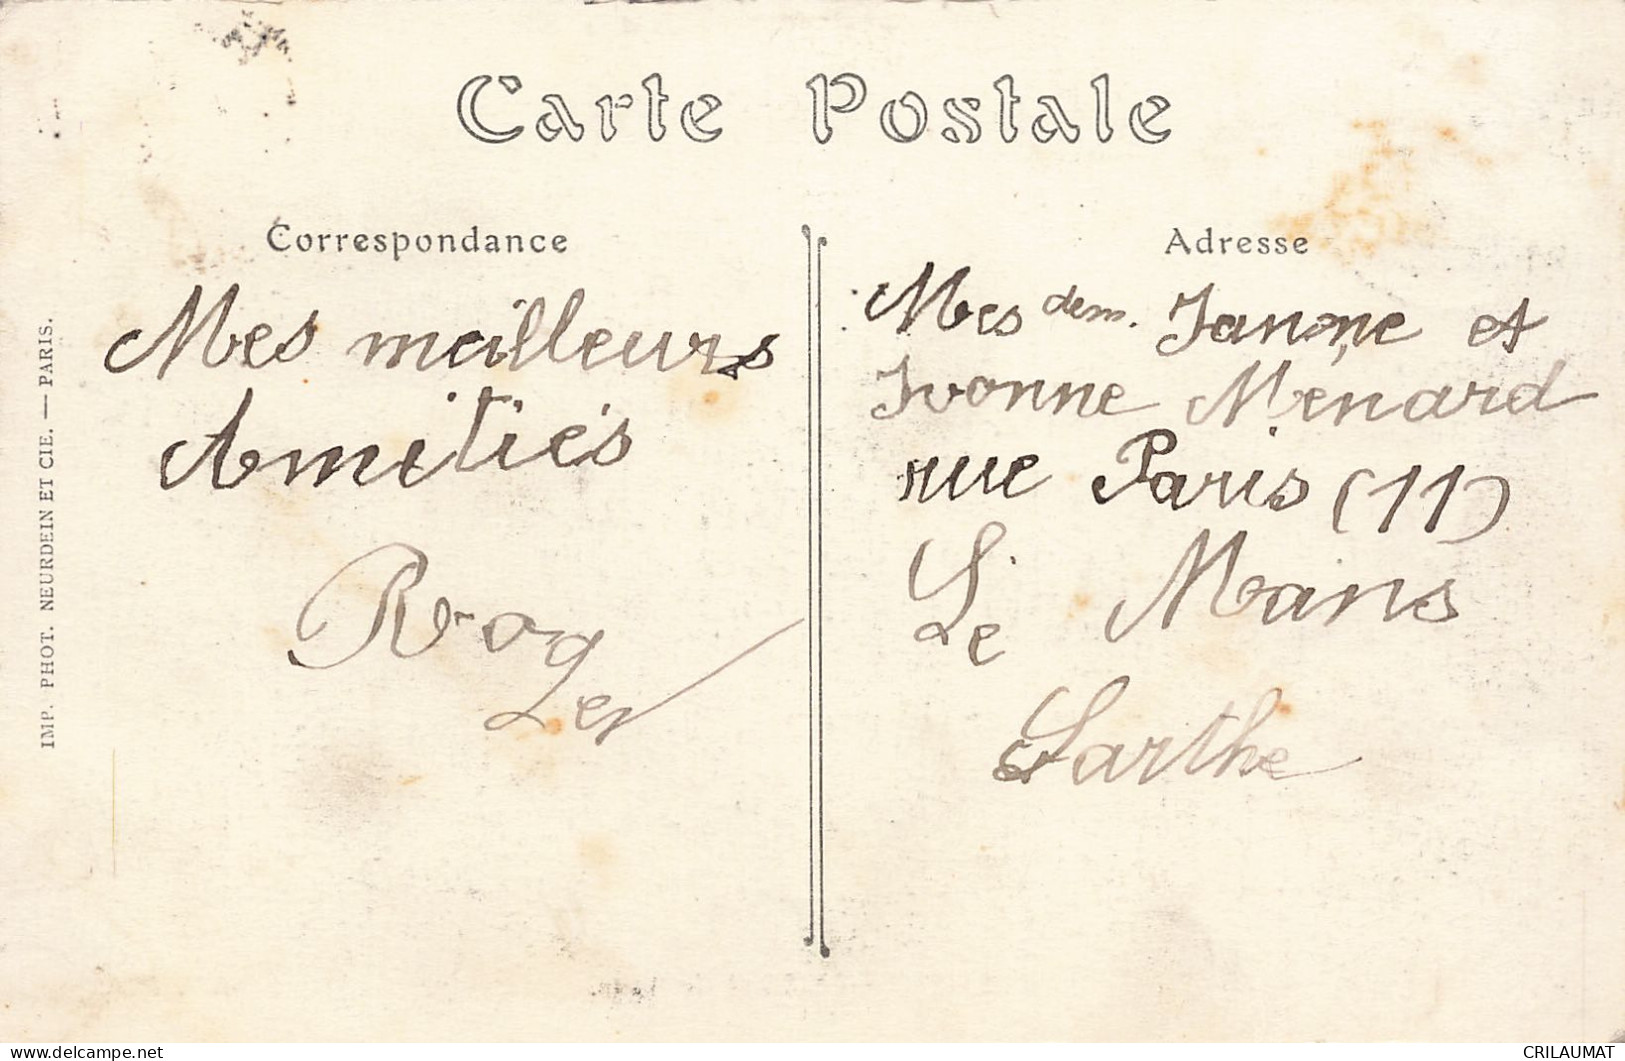 Carte Postale
Correspondance
Mes meilleurs
Amitiés
Roger
Adresse
Mes dem. Janne et
Ivonne Menard
rue Paris (11)
Le Mans
Sarthe
IMP. PHOT. NEURDEIN ET CIE. — PARIS.
delcampe.net
CRILAUMAT